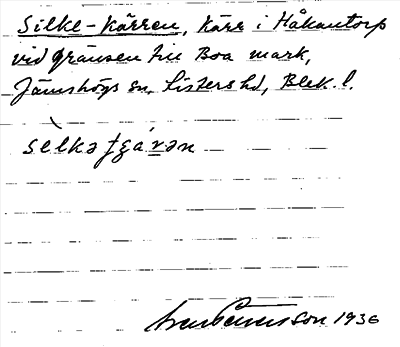 Silke-kärren, kärr i Håkantorp
vid gränsen till Boa mark,
Jämshögs sn, Listers hd, Blek. l.
1936